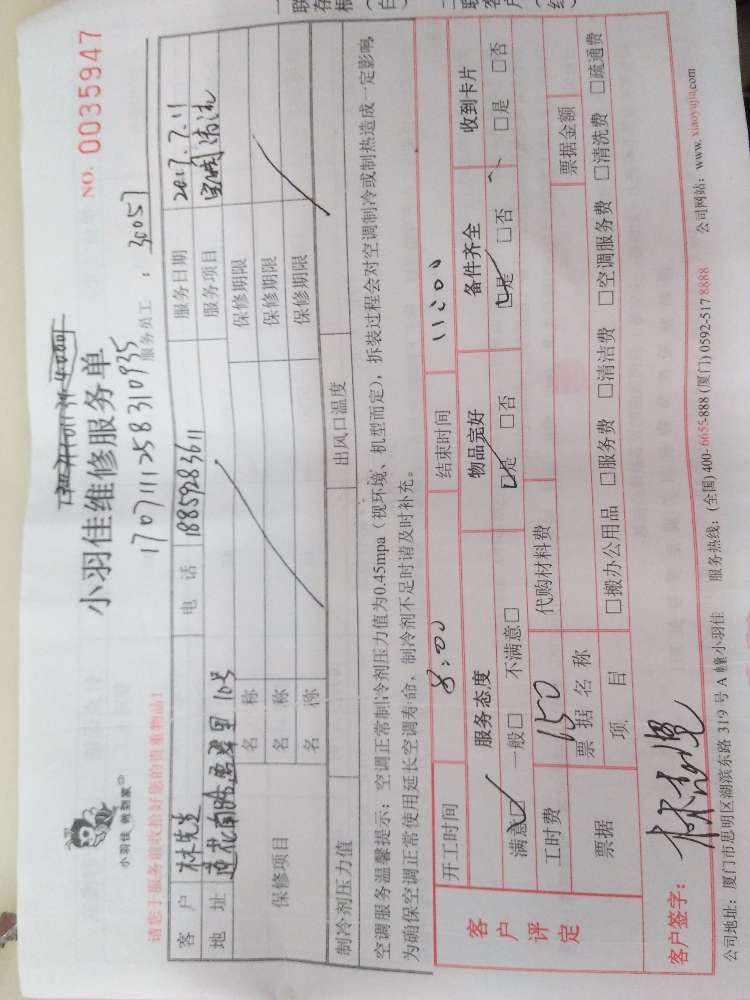 小羽佳 做到家
小羽佳维修服务单
NO. 0035947
1707111258310935
请您于服务前收拾好您的贵重物品！
服务员工：30053
客户 林先生 电话 18859283611 服务日期 2017.7.11
地址 莲花南路 里 10号 服务项目 清洗
保修项目 名称 保修期限
名称 保修期限
名称 保修期限
制冷剂压力值 出风口温度
空调服务温馨提示：空调正常制冷剂压力值为0.45mpa（视环境、机型而定），拆装过程会对空调制冷或制热造成一定影响，
为确保空调正常使用延长空调寿命，制冷剂不足时请及时补充。
客户评定
开工时间 8:00 结束时间 11:00
服务态度 物品完好 备件齐全 收到卡片
满意☑ 一般□ 不满意□ ☑是 □否 ☑是 □否 □是 □否
工时费 150 代购材料费
票据 票据名称 票据金额
项目 □搬办公用品 □服务费 □清洁费 □空调服务费 □清洗费 □疏通费
客户签字：
公司地址：厦门市思明区湖滨东路 319 号 A 幢小羽佳 服务热线：(全国) 400-6655-888 (厦门) 0592-517 8888 公司网站：www. xiaoyujia.com